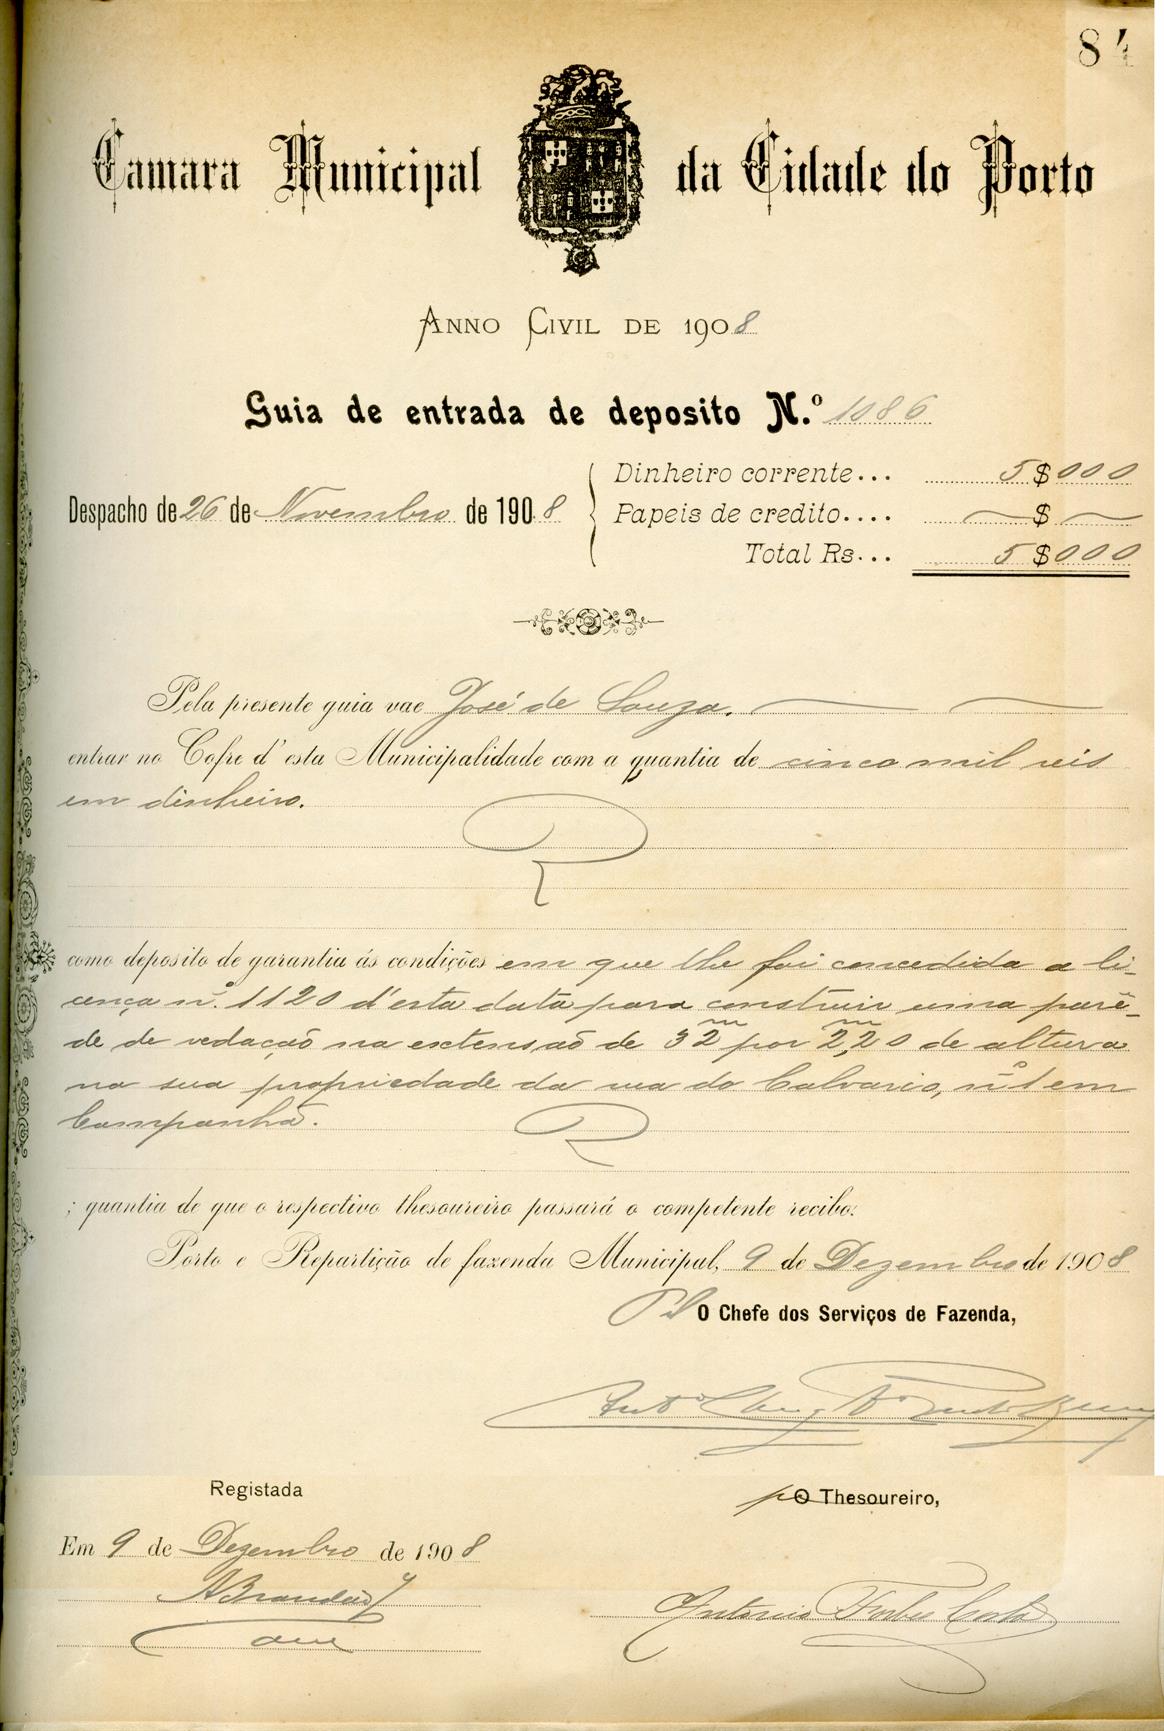 84
Camara Municipal da Cidade do Porto
ANNO CIVIL DE 1908
Guia de entrada de deposito N.º 1086
Dinheiro corrente... 5$000
Despacho de 26 de Novembro de 1908
Papeis de credito.... $
Total Rs... 5$000
Pela presente guia vae José de Souza.
entrar no Cofre d'esta Municipalidade com a quantia de cinco mil reis
em dinheiro.
como deposito de garantia ás condições em que lhe foi concedida a li-
cença nº. 1120 d'esta data para construir uma pare-
de de vedação na extensão de 32m por 2,m20 de altura
na sua propriedade da rua do Calvario, nº 1 em
Campanhã.
; quantia de que o respectivo thesoureiro passará o competente recibo.
Porto e Repartição de fazenda Municipal, 9 de Dezembro de 1908
O Chefe dos Serviços de Fazenda,
Registada
pO Thesoureiro,
Em 9 de Dezembro de 1908
ABrandão
Antonio Costa